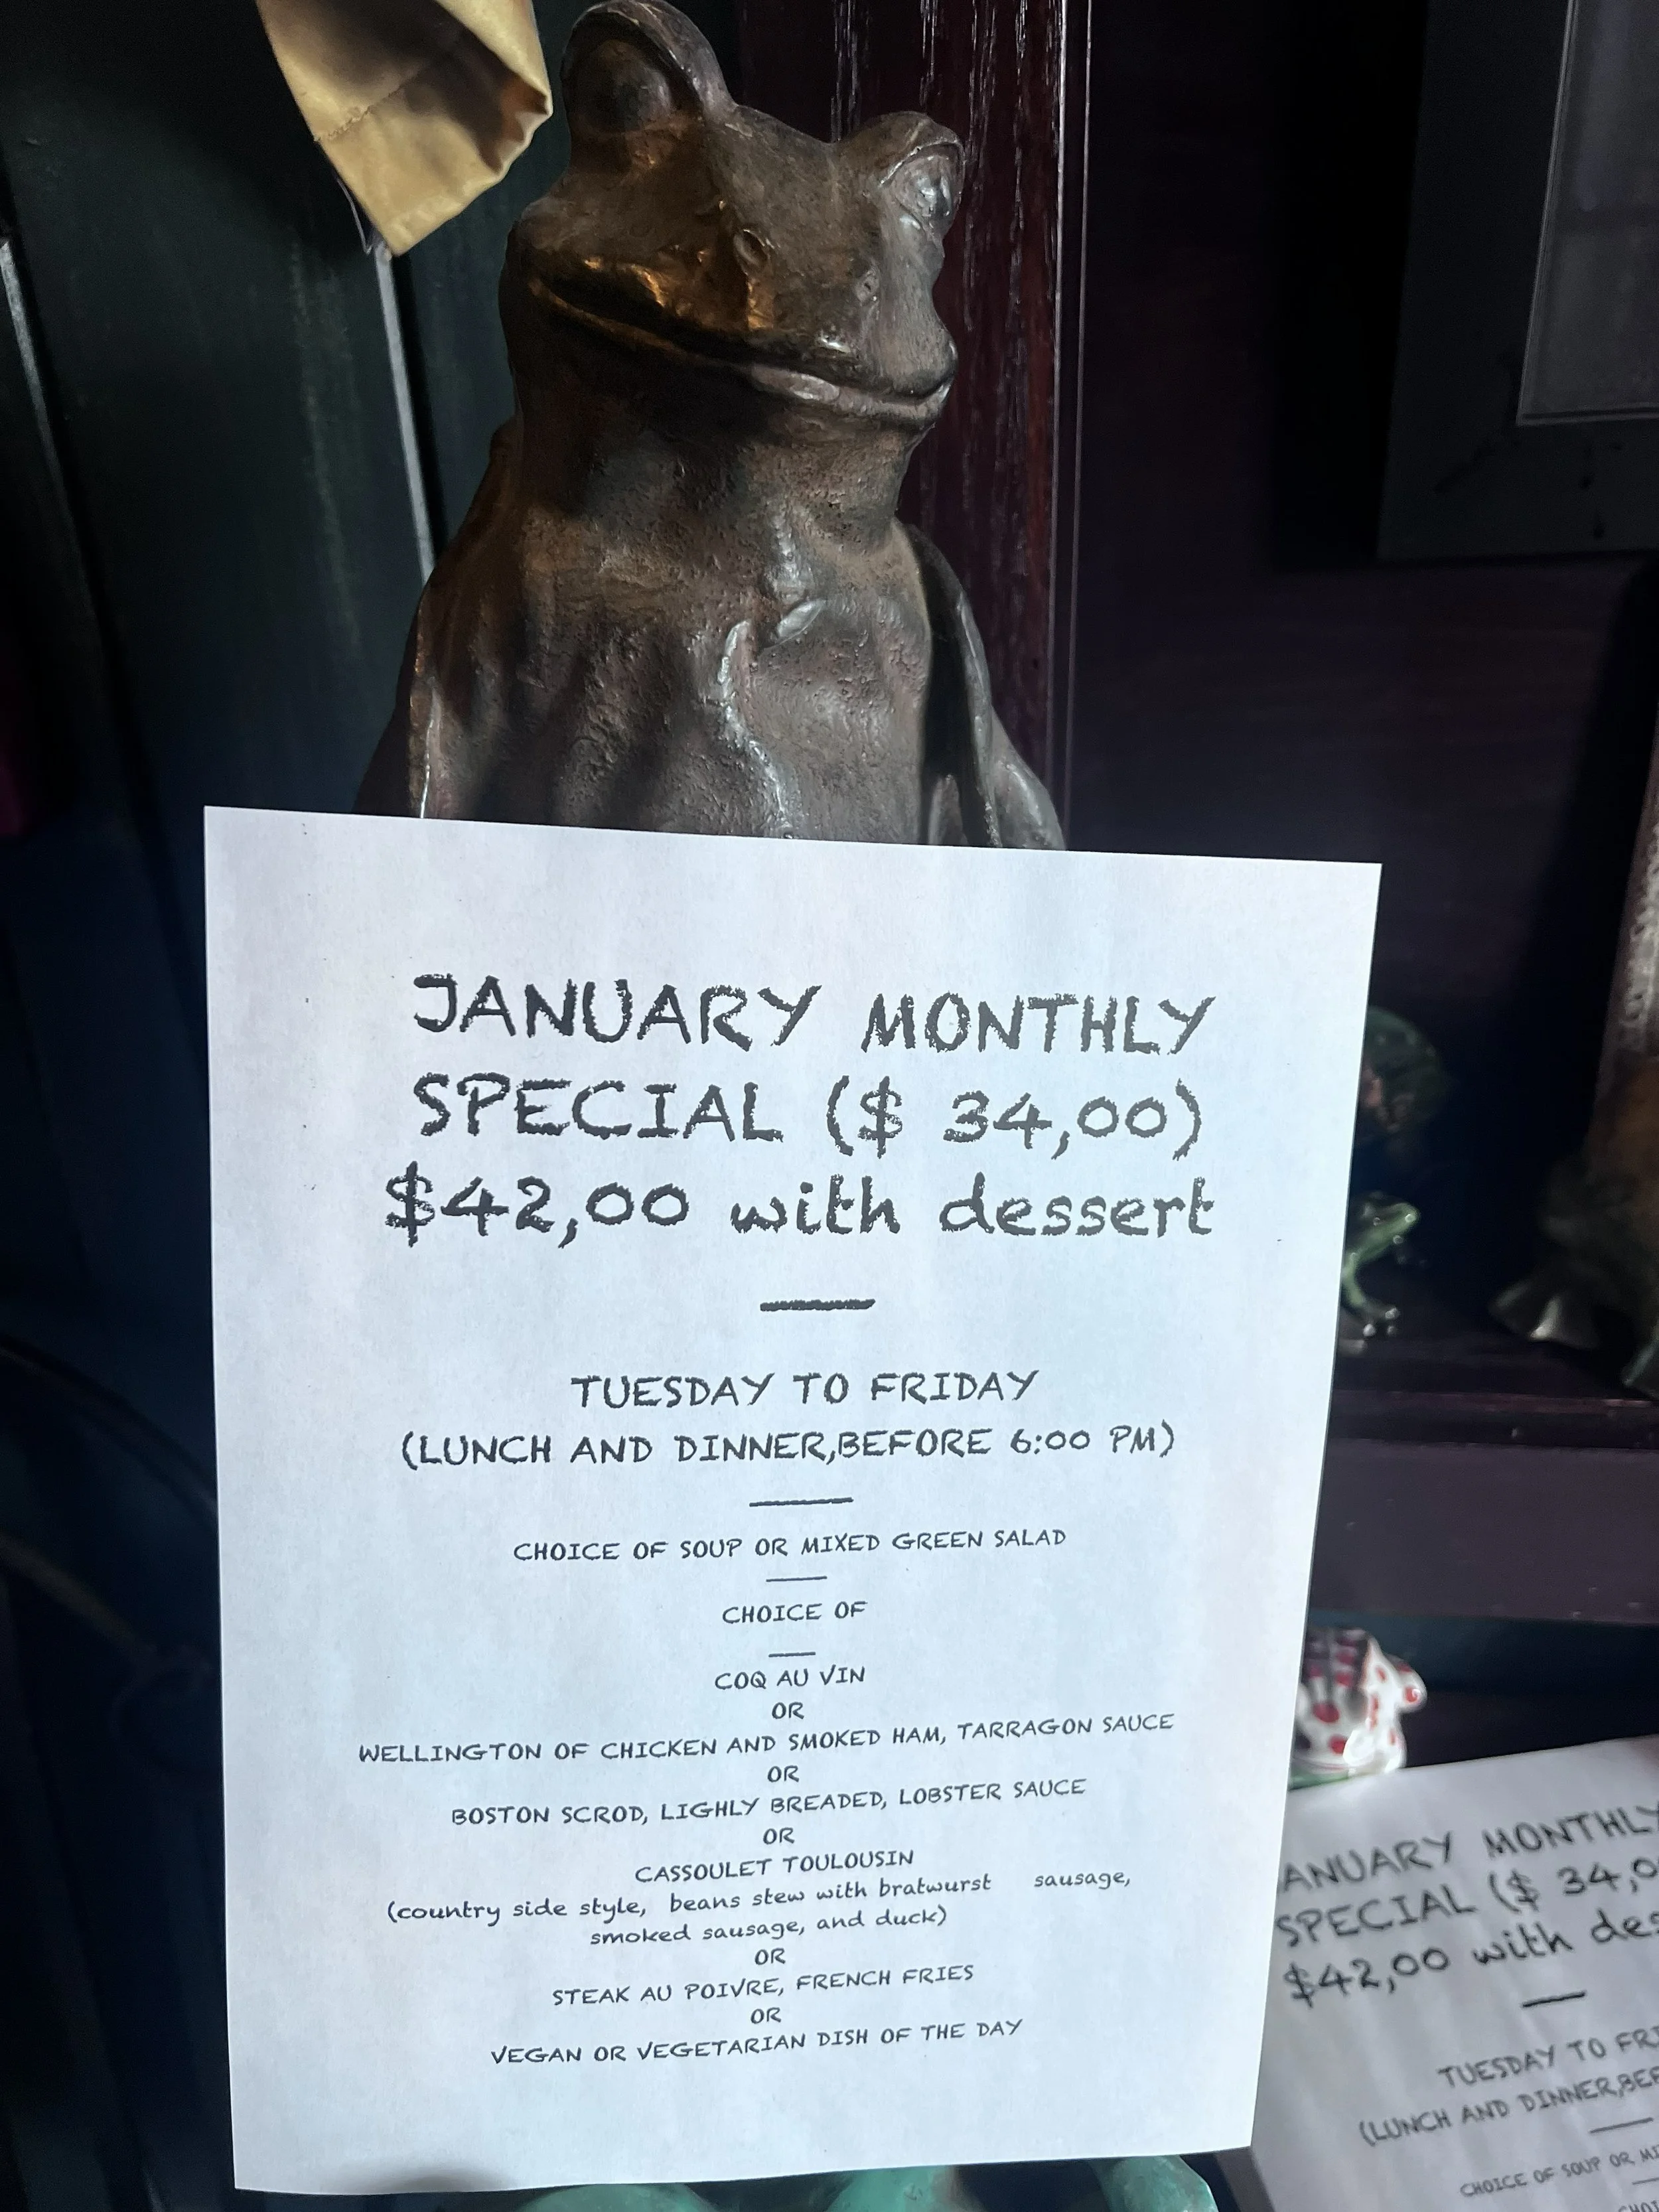 JANUARY MONTHLY
SPECIAL ($ 34,00)
$42,00 with dessert
TUESDAY TO FRIDAY
(LUNCH AND DINNER,BEFORE 6:00 PM)
CHOICE OF SOUP OR MIXED GREEN SALAD
CHOICE OF
COQ AU VIN
OR
WELLINGTON OF CHICKEN AND SMOKED HAM, TARRAGON SAUCE
OR
BOSTON SCROD, LIGHLY BREADED, LOBSTER SAUCE
OR
CASSOULET TOULOUSIN
(country side style, beans stew with bratwurst sausage,
smoked sausage, and duck)
OR
STEAK AU POIVRE, FRENCH FRIES
OR
VEGAN OR VEGETARIAN DISH OF THE DAY
ANUARY MONTHLY
SPECIAL ($ 34,0
$42,00 with des
TUESDAY TO FRI
(LUNCH AND DINNER,BEF
CHOICE OF SOUP OR MI